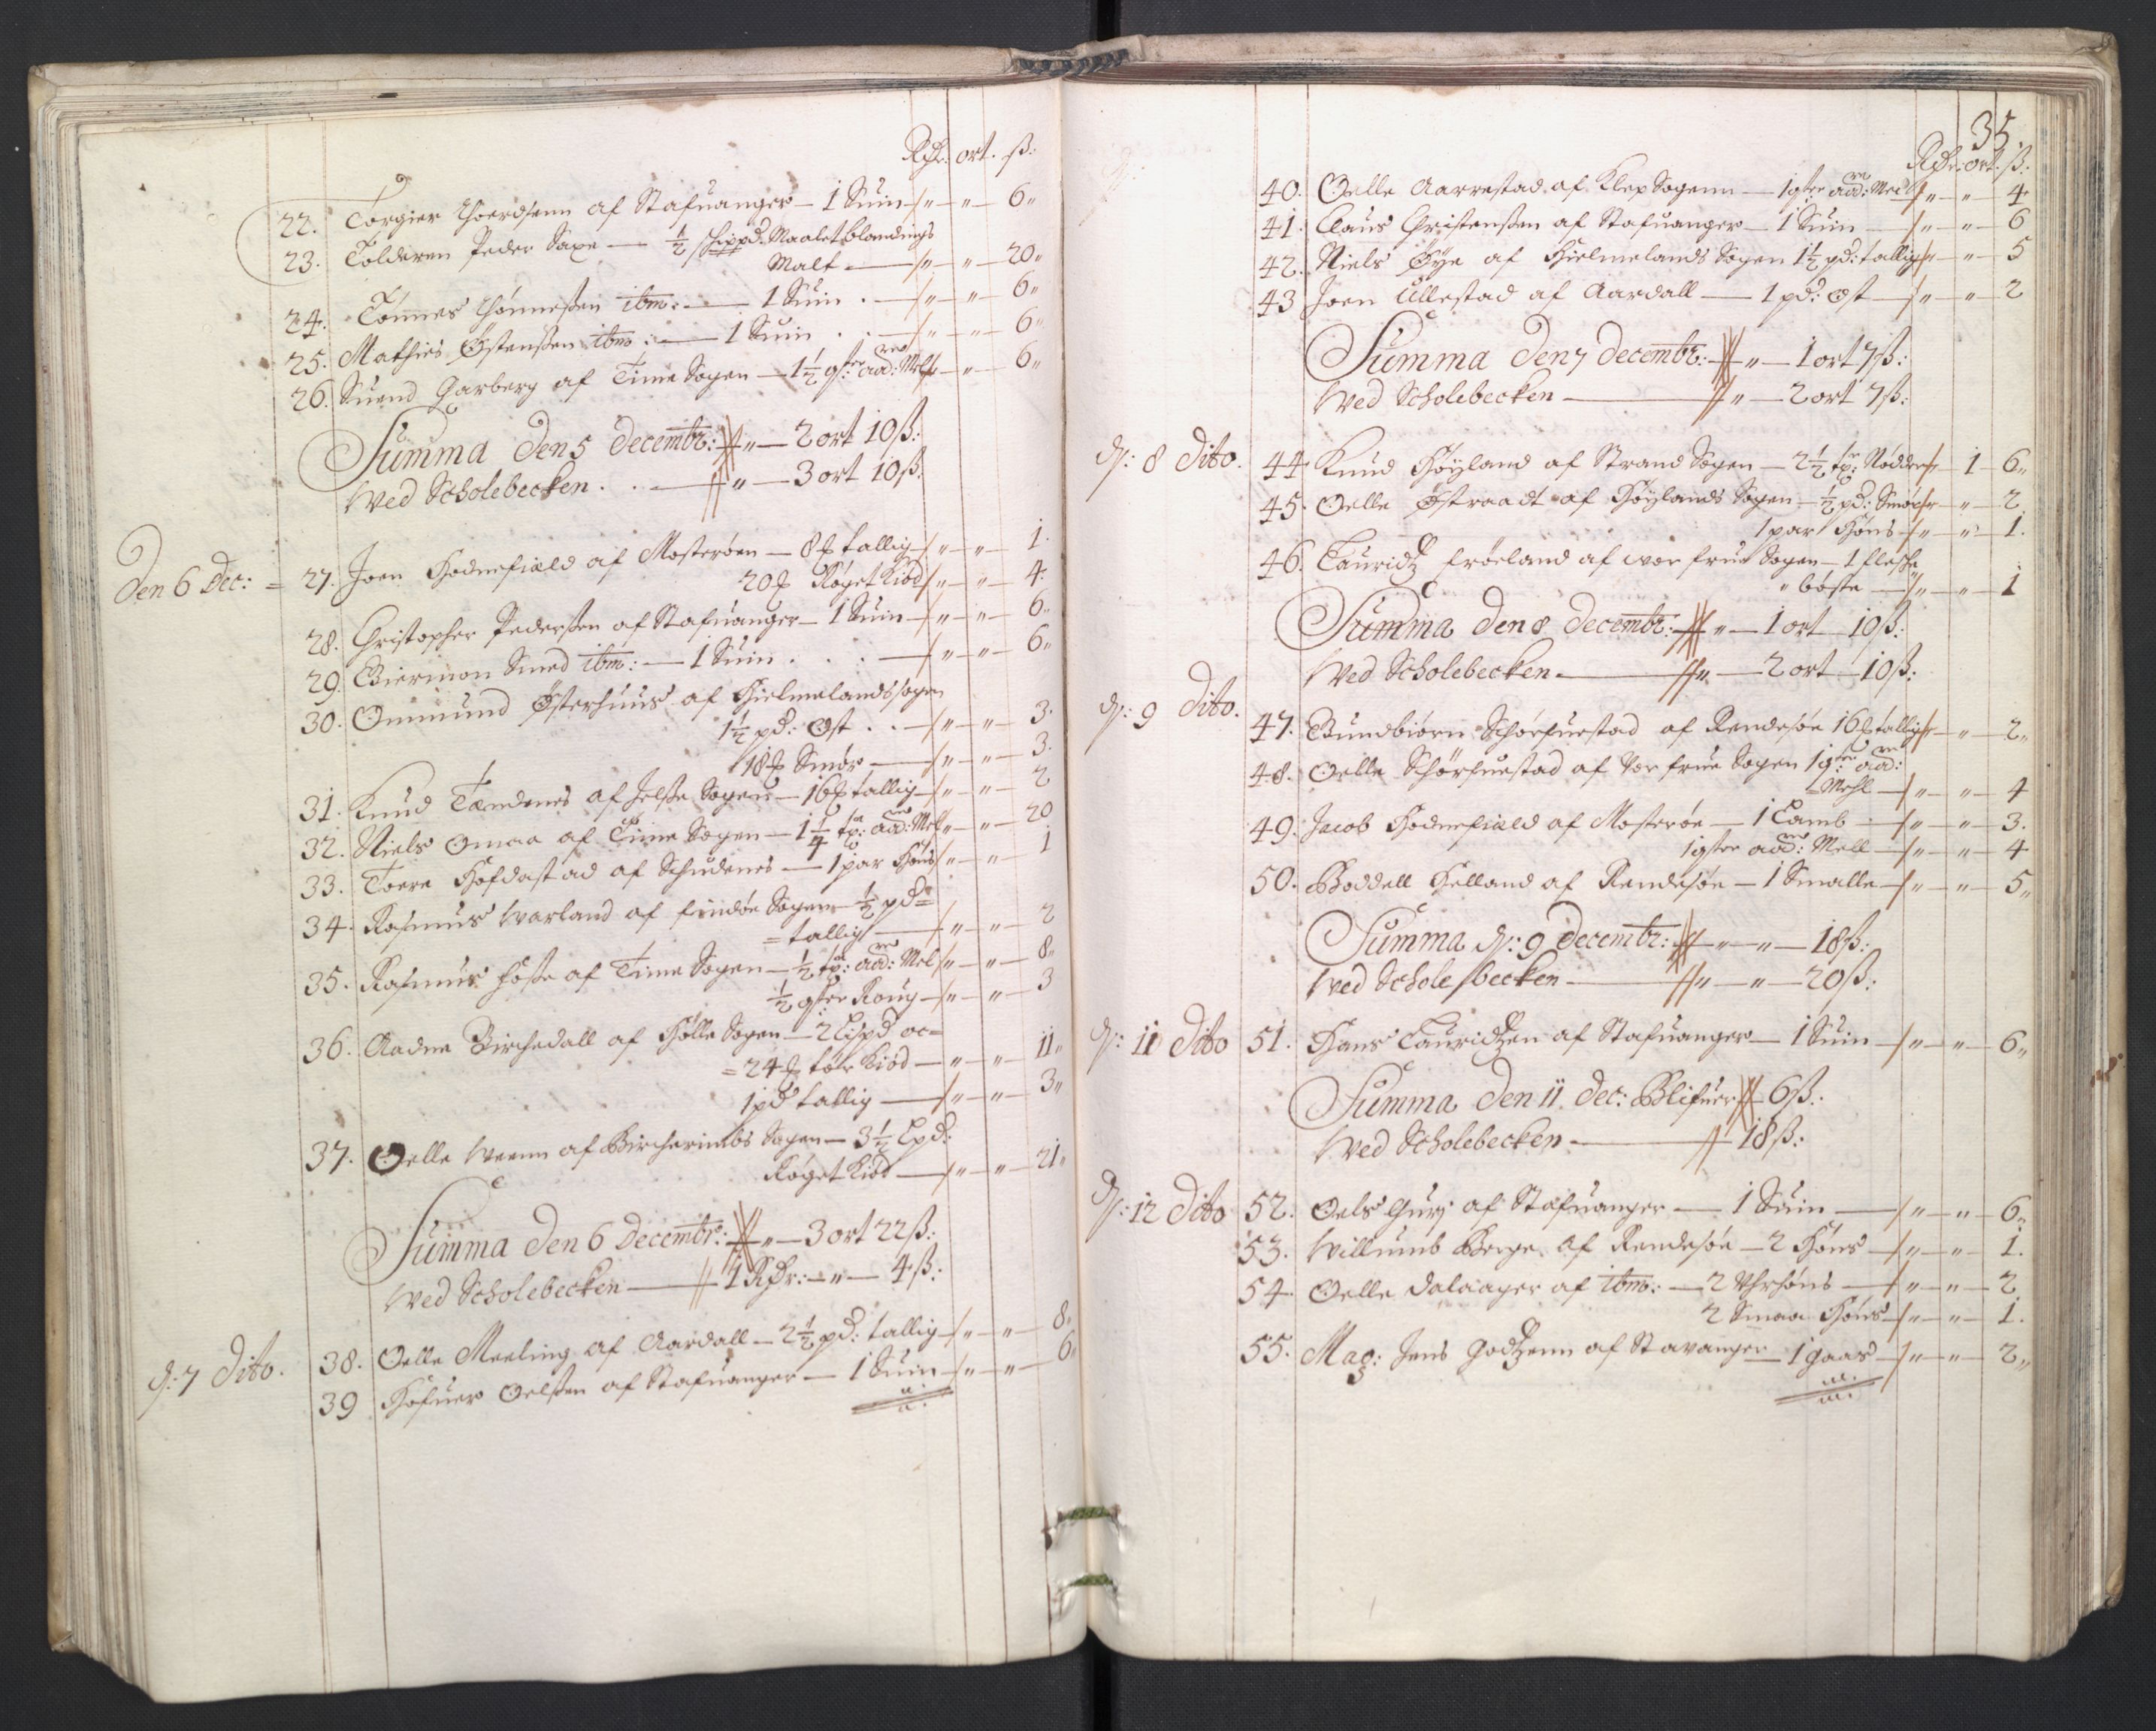 Rdr: ort. ß:
22. Torgier Thoersenn af Stafuanger — 1 Suin — „ — „ — 6„
23. Tolderen Peder Saxe — ½ schippd: Maalet blandings
Malt — „ — „ — 20„
24. Tønnes Thønneßen ibm: — 1 Suin . — „ — „ — 6„
25. Mathies Østenßen ibm: — 1 Suin . . — „ — „ — 6„
26. Suend Garberg af Time Sogen — 1½ qter: aad: Mel — „ — 6„
Summa Den 5 decembr: „ — 2 ort 10 ß:
Wed Scholebecken . . — „ — 3 ort 10 ß:
Den 6 Dec: = 27. Joen Hodnefield af Mosterøen — 8 ℔ tallig — „ — „ — 1.
20 ℔ Røget Kiød — „ — „ — 4.
28. Christopher Pederßen af Stafuanger — 1 Suin — „ — „ — 6„
29. Biermon Smed ibm: — 1 Suin . . . — „ — „ — 6„
30. Ommund Østerhuus af Hielmelands sogen
1½ pd: Ost . . — „ — „ — 3.
18 ℔ Smør — „ — „ — 3.
31. Knud Tændenes af Jelße Sogen — 16 ℔ tallig — „ — „ — 2
32. Niels Omaa af Time Sogen — 1¼ tr: aad: Mel „ — „ — 20
33. Toere Hofdastad af Schudenes — 1 par Høns „ — „ — 1
34. Rasmus Warland af findøe Sogen ½ pd =
= tallig — „ — „ — 2
35. Rasmus Hoße af Time Sogen — ½ tr: aad: Mel „ — „ — 8„
½ qter Roug — „ — „ — 3
36. Aadne Birchedall af Hølle Sogen — 2 Lispd oc =
= 24 ℔ tør Kiød — „ — „ — 11„
1 pd tallig — „ — „ — 3„
37. Oelle Weenn af Bircherimbs Sogen — 3½ Lpd:
Røget Kiød — „ — „ — 21„
Summa Den 6 Decembr: „ — 3 ort 22 ß:
Wed Scholebecken — 1 Rdr: — „ — 4 ß:
d: 7 Dito. 38. Oelle Meeling af Aardall — 2½ pd: tallig — „ — „ — 8„
39 Hofuer Oelßen af Stafuanger — 1 Suin — „ — „ — 6„
35.
Rdr: ort: ß:
40. Oelle Aarrestad af Klep Sogenn — 1 qter aad: Mel „ — „ — 4
41. Claus Christenßen af Stafuanger — 1 Suin — „ — „ — 6
42. Niels Øye af Hielmelands Sogen 1½ pd: tallig „ — „ — 5
43 Joen Ullestad af Aardall — 1 pd: Ost — „ — „ — 2
Summa Den 7 decembr: „ — 1 ort 7 ß:
Wed Scholebecken — „ — 2 ort 7 ß:
d: 8 Dito. 44. Knud Høyland af Strand Sogen — 2½ tr: Nødder „ — 1 — 6„
45. Oelle Østraadt af Høylands Sogen — ½ pd: Smør „ — „ — 2
1 par Høns — „ — „ — 1.
46. Lauridtz frøeland af vor frue Sogen — 1 fleske
„ bøste — „ — „ — 1
Summa Den 8 decembr: „ — 1 ort 10 ß:
Wed Scholebecken — „ — 2 ort — 10 ß:
d: 9 Dito. 47. Bundbiørn Schørfuestad af Rendesøe 16 ℔ tallig „ — „ — 2„
48. Oelle Schørfuestad af Vor frue Sogen 1 qter: aad:
Mehl — „ — „ — 4
49. Jacob Hodnefield af Mosterøe — 1 Lamb — „ — „ — 3.
1 qter aad: Mell — „ — „ — 4
50. Boddell Helland af Rendesøe — 1 Smalle — „ — „ — 5„
Summa d: 9 Decembr: „ — „ — 18 ß:
Wed Scholebecken — „ — „ — 20 ß:
d: 11 Dito 51. Hans Lauridtzen af Stafuanger — 1 Suin — „ — „ — 6„
Summa Den 11 Dec: Blifuer 6 ß:
Wed Scholebecken — 18 ß:
d: 12 Dito 52. Oels Gurj af Stafuanger — 1 Suin — „ — „ — 6„
53. Willumb Berge af Rendesøe — 2 Høns — „ — „ — 1.
54. Oelle Dalaager af ibm: — 2 Uhrhøns — „ — „ — 2
2 Smaa Høns — „ — „ — 1.
55. Mag: Jens Godtzenn af Stavanger — 1 gaas — „ — „ — 2„